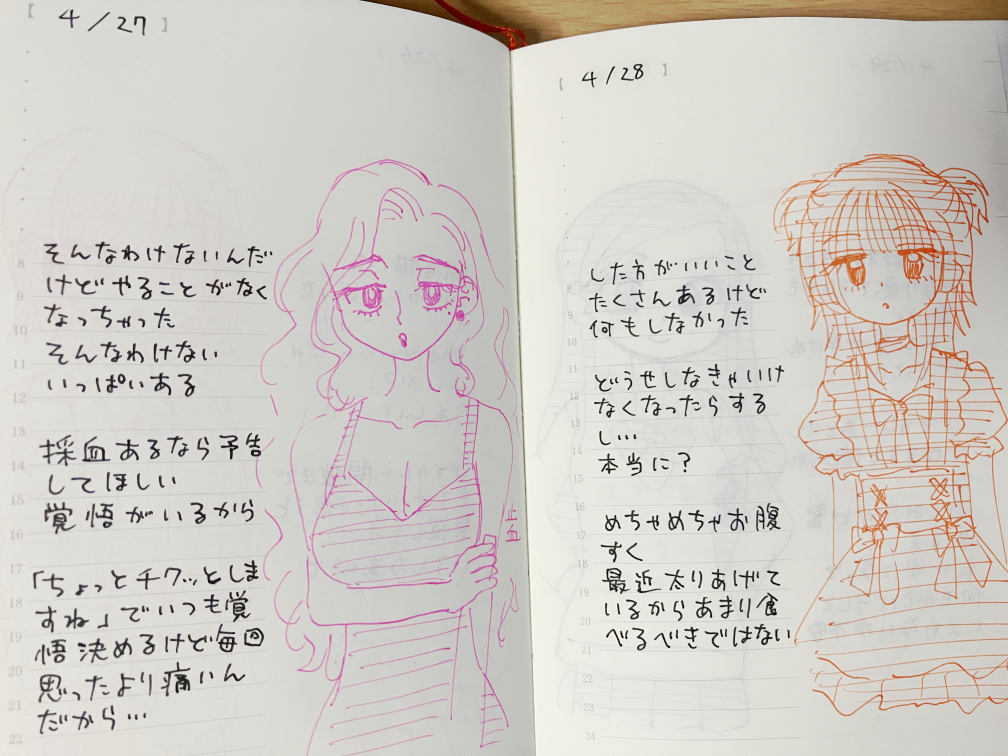 【 4/27 】
そんなわけないんだ
けどやることがなく
なっちゃった
そんなわけない
いっぱいある
採血あるなら予告
してほしい
覚悟がいるから
「ちょっとチクッとしま
すね」でいつも覚
悟決めるけど毎回
思ったより痛いん
だから…
止血
8
9
10
11
12
13
14
15
16
17
18
19
20
21
22
【 4/28 】
した方がいいこと
たくさんあるけど
何もしなかった
どうせしなきゃいけ
なくなったらする
し…
本当に?
めちゃめちゃお腹
すく
最近太りあげて
いるからあまり食
べるべきではない
8
9
10
11
12
13
14
15
16
17
18
19
20
21
22
23
24